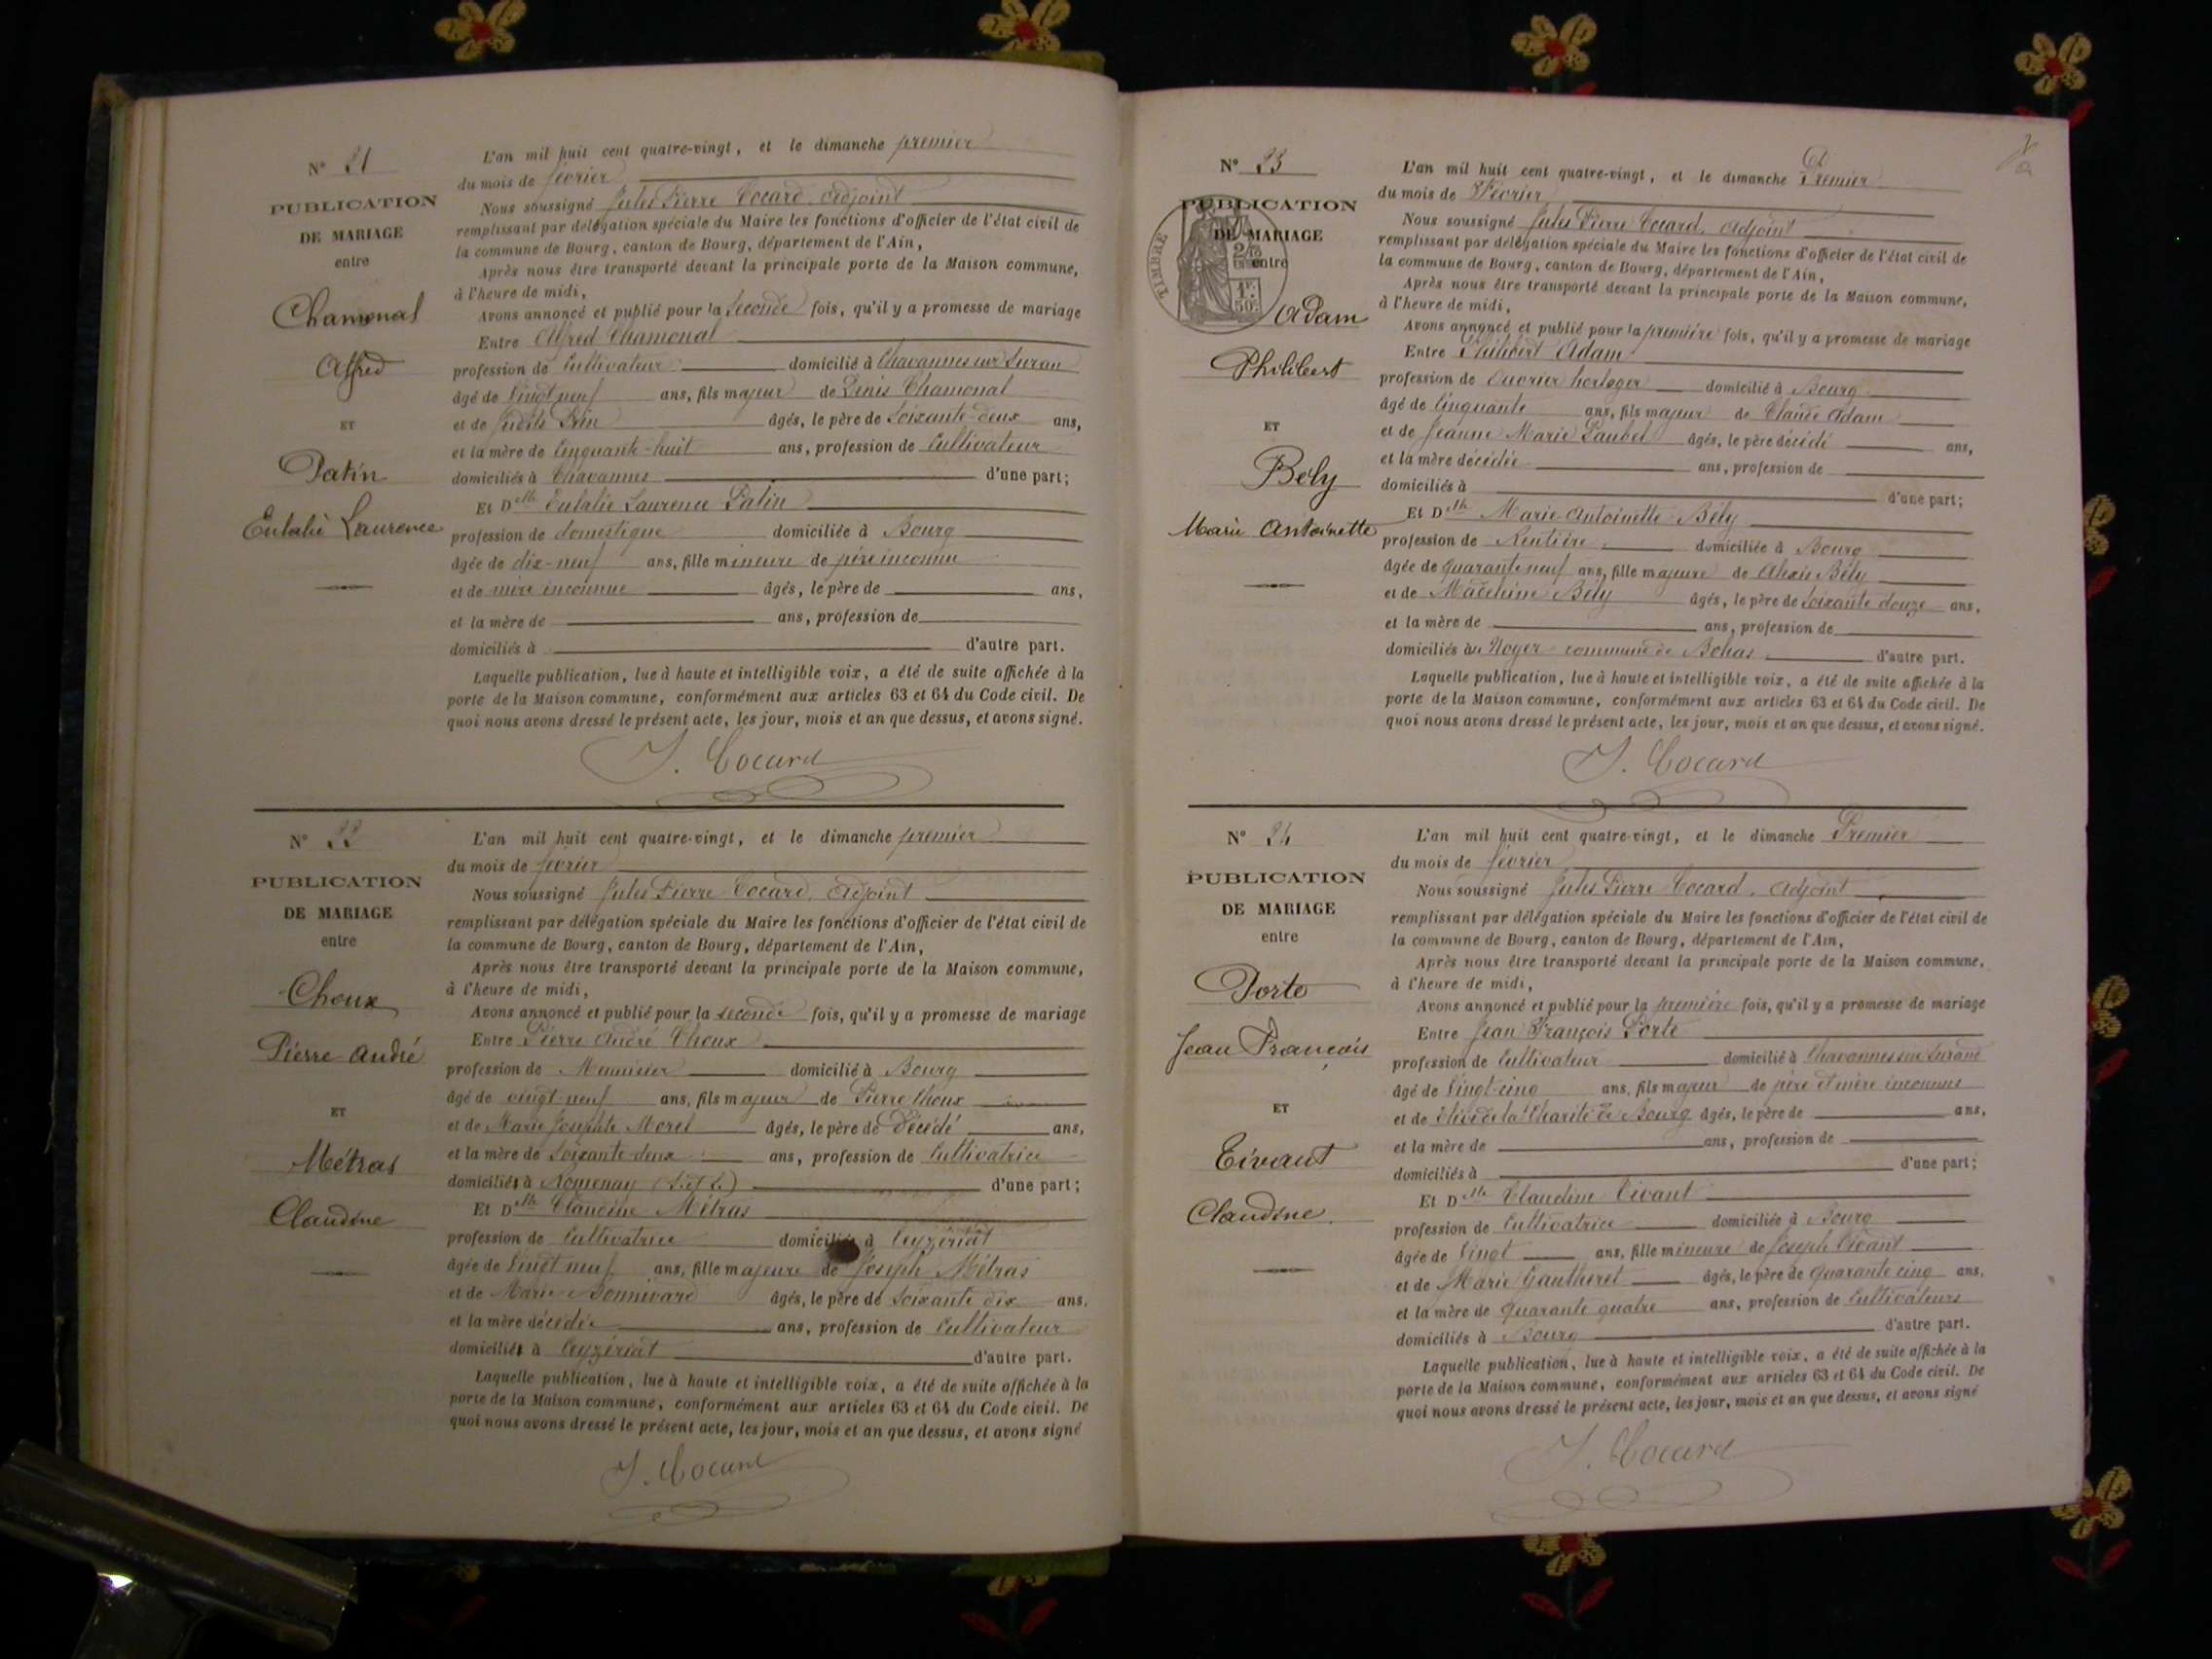 N° 21
PUBLICATION
DE MARIAGE
entre
Chamonal
Alfred
ET
Patin
Eulalie Laurence
L'an mil huit cent quatre-vingt, et le dimanche premier
du mois de février
Nous soussigné Jules Pierre Cocard, adjoint
remplissant par délégation spéciale du Maire les fonctions d'officier de l'état civil de
la commune de Bourg, canton de Bourg, département de l'Ain,
Après nous être transporté devant la principale porte de la Maison commune,
à l'heure de midi,
Avons annoncé et publié pour la seconde fois, qu'il y a promesse de mariage
Entre Alfred Chamonal
profession de Cultivateur domicilié à Chavannes sur Suran
âgé de vingt neuf ans, fils majeur de Denis Chamonal
et de Judith âgés, le père de soixante-deux ans,
et la mère de cinquante-huit ans, profession de Cultivateur
domiciliés à Chavannes d'une part;
Et Dlle Eulalie Laurence Patin
profession de domestique domiciliée à Bourg
âgée de dix-neuf ans, fille mineure de père inconnu
et de mère inconnue âgés, le père de ans,
et la mère de ans, profession de
domiciliés à d'autre part.
Laquelle publication, lue à haute et intelligible voix, a été de suite affichée à la
porte de la Maison commune, conformément aux articles 63 et 64 du Code civil. De
quoi nous avons dressé le présent acte, les jour, mois et an que dessus, et avons signé.
J. Cocard
N° 22
PUBLICATION
DE MARIAGE
entre
Choux
Pierre André
ET
Métras
Claudine
L'an mil huit cent quatre-vingt, et le dimanche premier
du mois de février
Nous soussigné Jules Pierre Cocard, adjoint
remplissant par délégation spéciale du Maire les fonctions d'officier de l'état civil de
la commune de Bourg, canton de Bourg, département de l'Ain,
Après nous être transporté devant la principale porte de la Maison commune,
à l'heure de midi,
Avons annoncé et publié pour la seconde fois, qu'il y a promesse de mariage
Entre Pierre André Choux
profession de Menuisier domicilié à Bourg
âgé de vingt neuf ans, fils majeur de Pierre Choux
et de Marie Josephte Morel âgés, le père de Décédé ans,
et la mère de soixante deux ans, profession de Cultivatrice
domiciliés à Romenay (S. et L.) d'une part;
Et Dlle Claudine Métras
profession de Cultivatrice domiciliée à Ceyzériat
âgée de vingt neuf ans, fille majeure de Joseph Métras
et de Marie Bonnivard âgés, le père de soixante dix ans,
et la mère décédée ans, profession de Cultivateur
domiciliés à Ceyzériat d'autre part.
Laquelle publication, lue à haute et intelligible voix, a été de suite affichée à la
porte de la Maison commune, conformément aux articles 63 et 64 du Code civil. De
quoi nous avons dressé le présent acte, les jour, mois et an que dessus, et avons signé
J. Cocard
N° 23
PUBLICATION
DE MARIAGE
entre
TIMBRE
Adam
Philibert
ET
Bély
Marie Antoinette
L'an mil huit cent quatre-vingt, et le dimanche Premier
du mois de Février
Nous soussigné Jules Pierre Cocard, adjoint
remplissant par délégation spéciale du Maire les fonctions d'officier de l'état civil de
la commune de Bourg, canton de Bourg, département de l'Ain,
Après nous être transporté devant la principale porte de la Maison commune,
à l'heure de midi,
Avons annoncé et publié pour la première fois, qu'il y a promesse de mariage
Entre Philibert Adam
profession de Ouvrier horloger domicilié à Bourg
âgé de cinquante ans, fils majeur de Claude Adam
et de Jeanne Marie Paubel âgés, le père décédé ans,
et la mère décédée ans, profession de
domiciliés à d'une part;
Et Dlle Marie Antoinette Bély
profession de Rentière domiciliée à Bourg
âgée de quarante neuf ans, fille majeure de Alexis Bély
et de Madeleine Bély âgés, le père de soixante douze ans,
et la mère de ans, profession de
domiciliés au Noyer commune de Bohas d'autre part.
Laquelle publication, lue à haute et intelligible voix, a été de suite affichée à la
porte de la Maison commune, conformément aux articles 63 et 64 du Code civil. De
quoi nous avons dressé le présent acte, les jour, mois et an que dessus, et avons signé.
J. Cocard
N° 24
PUBLICATION
DE MARIAGE
entre
Porte
Jean François
ET
Civant
Claudine
L'an mil huit cent quatre-vingt, et le dimanche Premier
du mois de février
Nous soussigné Jules Pierre Cocard, adjoint
remplissant par délégation spéciale du Maire les fonctions d'officier de l'état civil de
la commune de Bourg, canton de Bourg, département de l'Ain,
Après nous être transporté devant la principale porte de la Maison commune,
à l'heure de midi,
Avons annoncé et publié pour la première fois, qu'il y a promesse de mariage
Entre Jean François Porte
profession de Cultivateur domicilié à Chavannes sur Surand
âgé de vingt-cinq ans, fils majeur de père et mère inconnus
et de élève de la Charité de Bourg âgés, le père de ans,
et la mère de ans, profession de
domiciliés à d'une part;
Et Dlle Claudine Civant
profession de Cultivatrice domiciliée à Bourg
âgée de vingt ans, fille mineure de Joseph Civant
et de Marie Gautheret âgés, le père de quarante cinq ans,
et la mère de quarante quatre ans, profession de Cultivateurs
domiciliés à Bourg d'autre part.
Laquelle publication, lue à haute et intelligible voix, a été de suite affichée à la
porte de la Maison commune, conformément aux articles 63 et 64 du Code civil. De
quoi nous avons dressé le présent acte, les jour, mois et an que dessus, et avons signé
J. Cocard